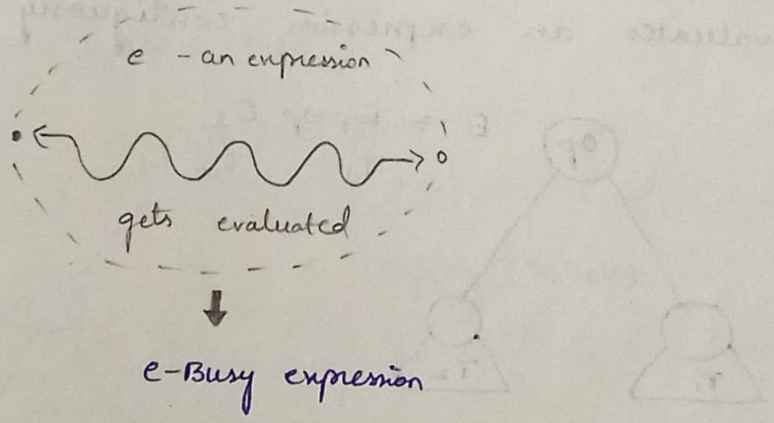 e - an expression
gets evaluated
e-Busy expression